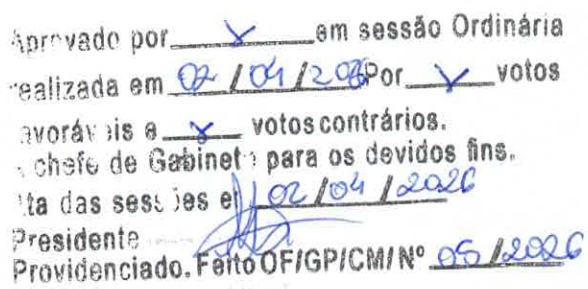 Aprovado por X em sessão Ordinária
realizada em 02/04/2026 Por X votos
avoráveis e X votos contrários.
chefe de Gabinete para os devidos fins.
ta das sessões em 02/04/2026
Presidente
Providenciado. Feito OF/GP/CM/Nº 05/2026